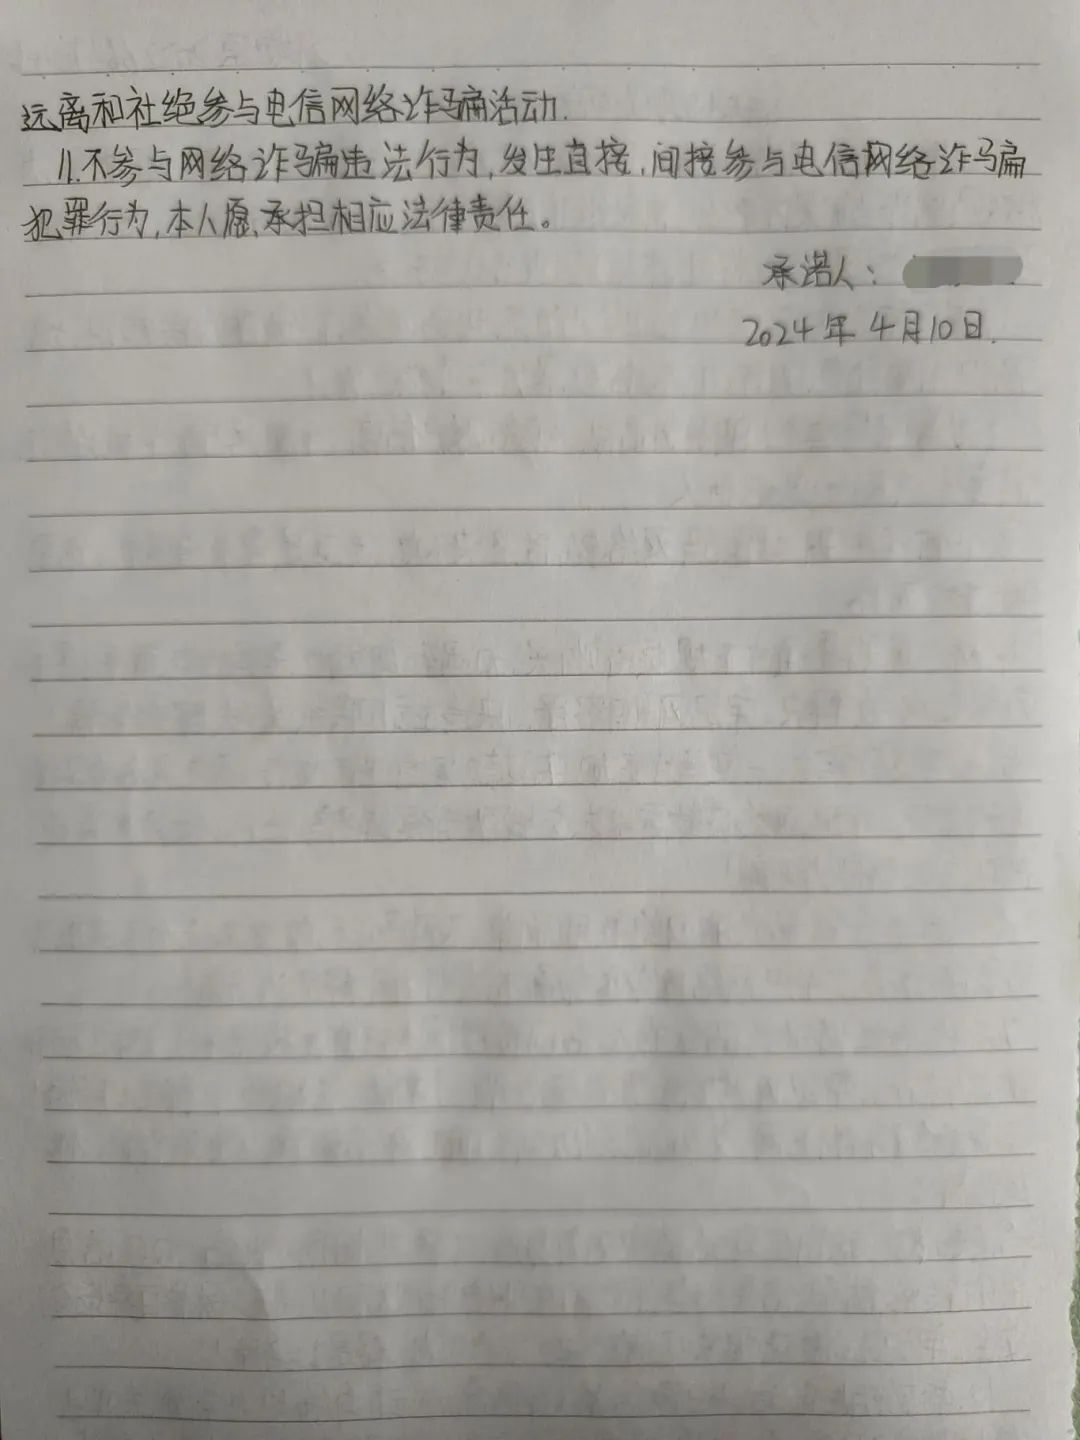 远离和社绝参与电信网络诈骗活动.
11.不参与网络诈骗违法行为,发生直接、间接参与电信网络诈骗
犯罪行为,本人愿承担相应法律责任。
承诺人：
2024年4月10日.